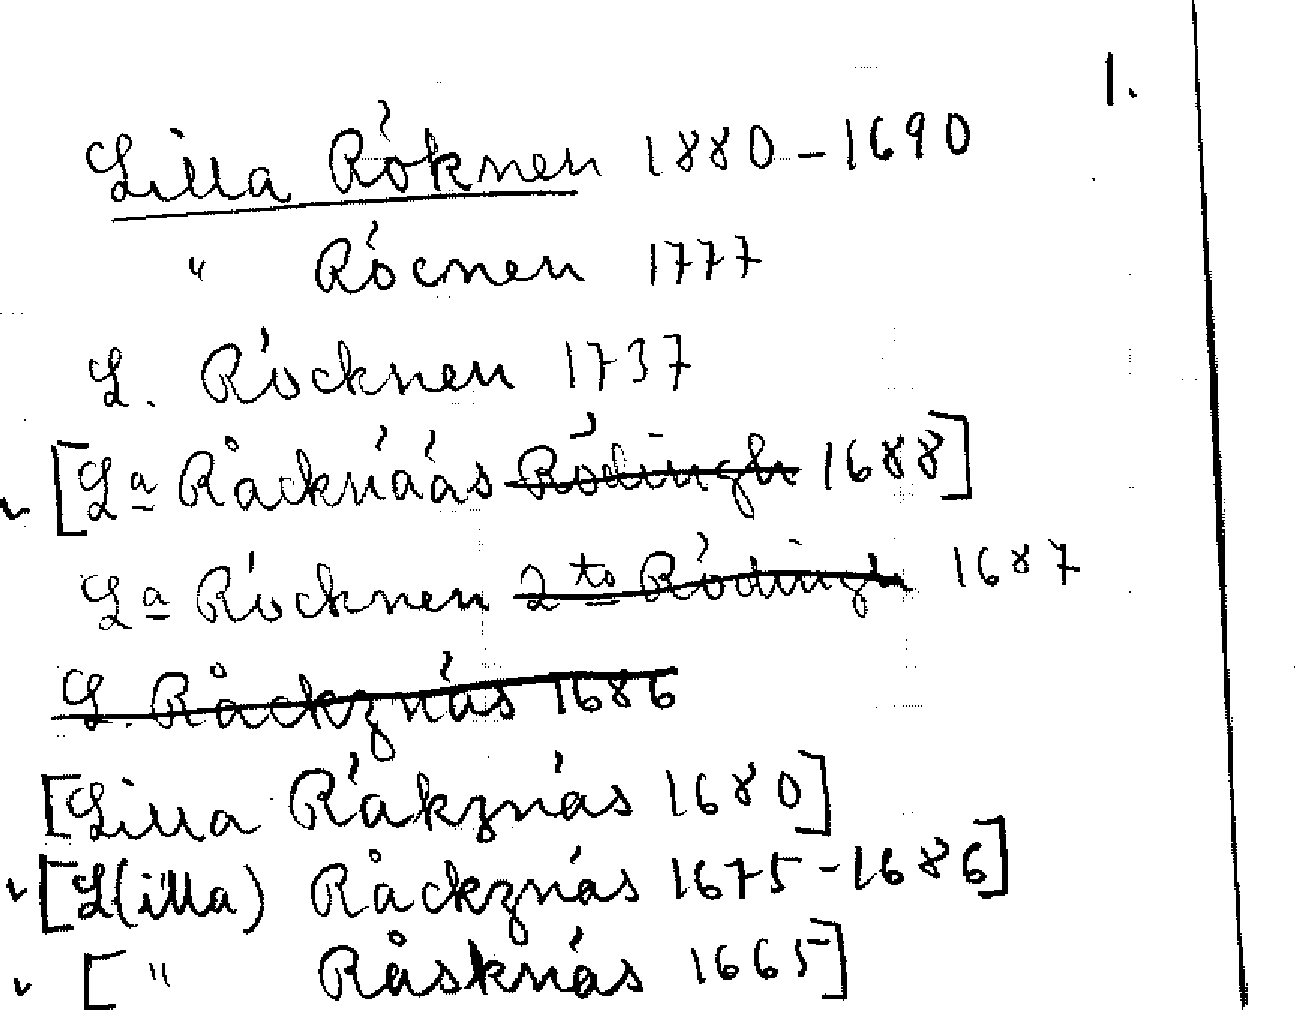 1.
Lilla Röknen 1880-1690
" Röcnen 1777
L. Röcknen 1737
[La Råcknääs Rödingh 1688]
La Röcknen 2to Rödingh 1687
L. Råckznäs 1686
[Lilla Räkznäs 1680]
[L(illa) Råckznäs 1675-1686]
[ " Råsknäs 1665]